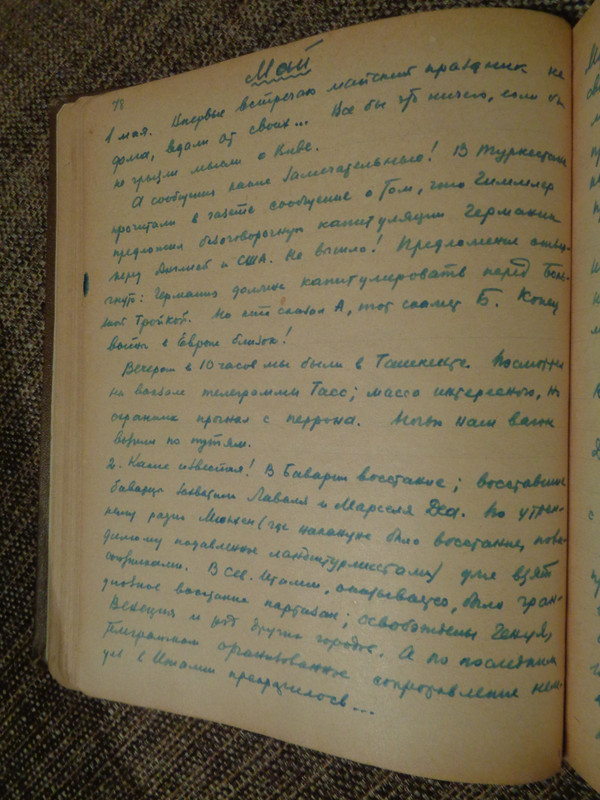 78
Май
1 мая. Впервые встречаю майский праздник не
дома, вдали от своих... Все бы это ничего, если бы
не грызли мысли о Киве.
А сообщения какие замечательные! В Туркестане
прочитали в газете сообщение о том, что Гиммлер
предложил безоговорочную капитуляцию Германии
перед Англией и США. Не вышло! Предложение отверг-
нуто: Германия должна капитулировать перед Боль-
шой Тройкой. Но кто сказал А, тот скажет Б. Конец
войны в Европе близок!
Вечером в 10 часов мы были в Ташкенте. Посмотрел
на вокзале телеграммы Тасс; масса интересного, но
охранник прогнал с перрона. Ночью наш вагон
возили по путям.
2. Какие известия! В Баварии восстание; восставшие
баварцы захватили Лаваля и Марселя Деа. По утрен-
нему радио Мюнхен (где накануне было восстание, пови-
димому подавленное ландштурмистами) уже взят
союзниками. В Сев. Италии, оказывается, было гран-
диозное восстание партизан; освобождены Генуя,
Венеция и ряд других городов. А по последним
телеграммам организованное сопротивление нем-
цев в Италии прекратилось...